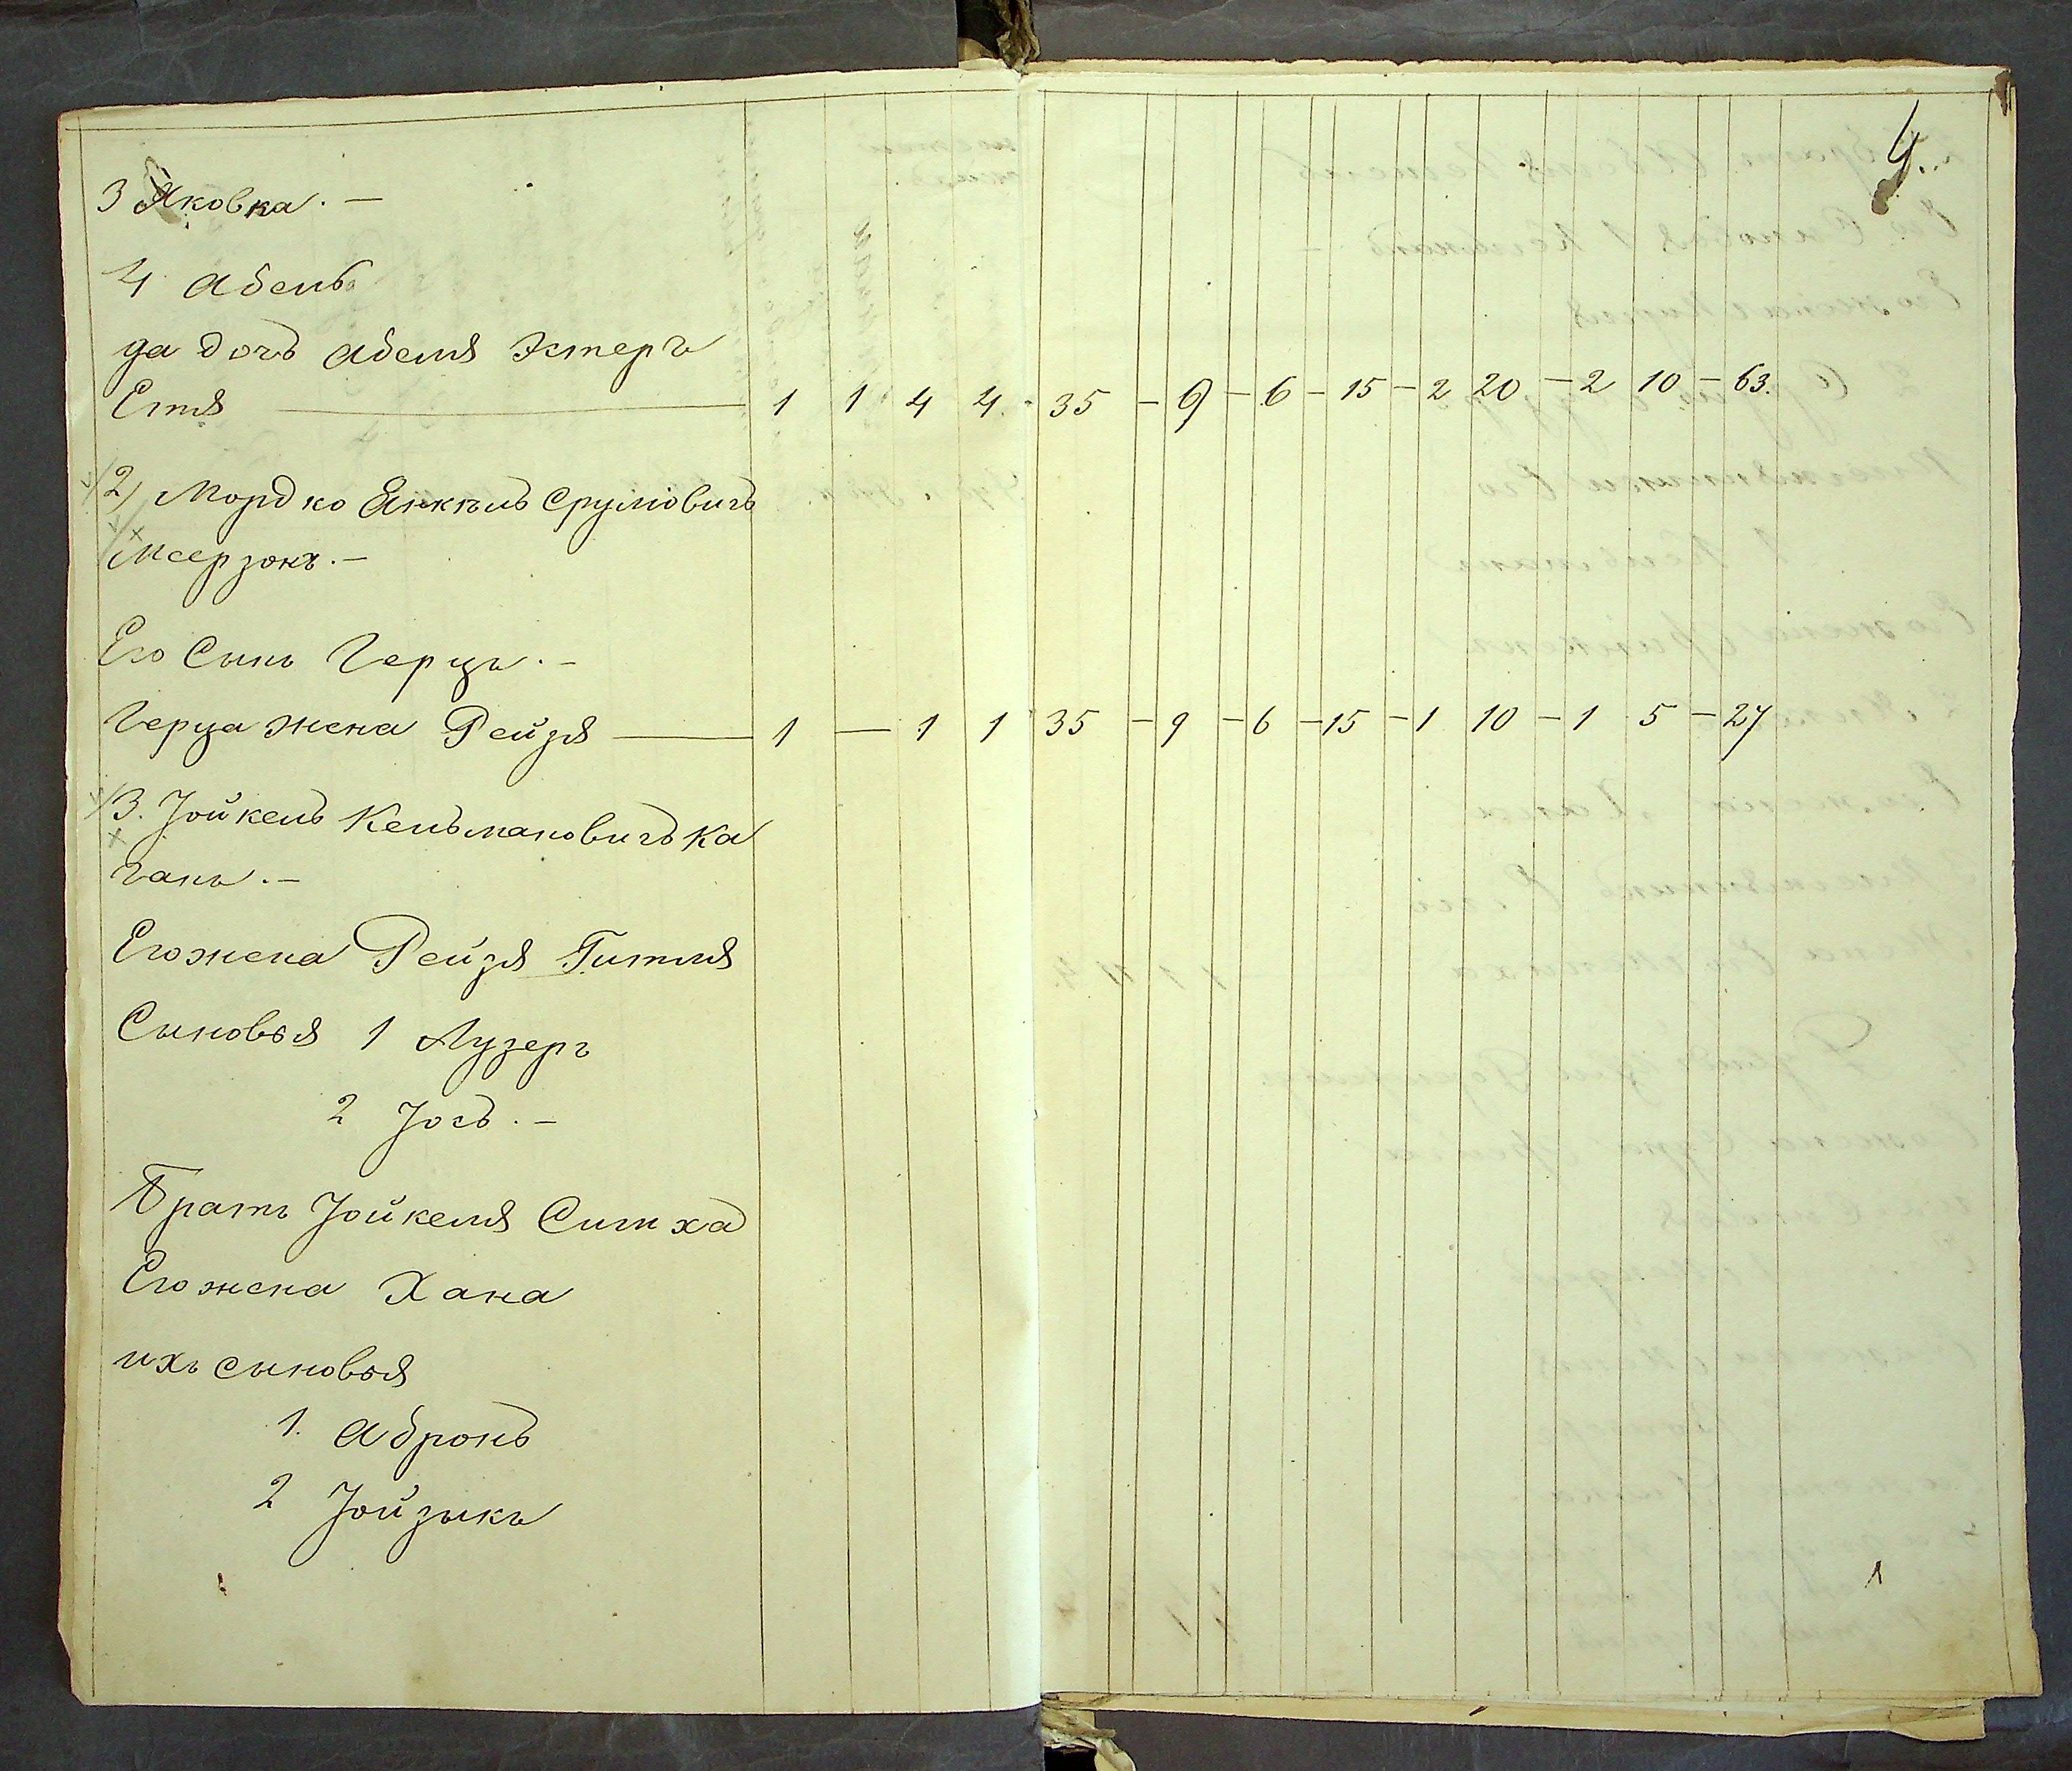 4.
3 Яковка. —
4 Абель
да дочь Абеля Эстеръ
Етя — 1 1 4 4 35 — 9 — 6 — 15 — 2 20 — 2 10 — 63.
2) Мордко Янкель Сруліовичъ
Меерзонъ. —
Его Сынъ Герцъ. —
Герца жена Рейзя — 1 — 1 1 35 — 9 — 6 — 15 — 1 10 — 1 5 — 27
3. Іойкель Кельмановичъ Ка
ганъ. —
Его жена Рейзя Гитля
Сыновья 1 Лузеръ
2 Іось. —
Братъ Іойкеля Симха
Его жена Хана
ихъ сыновья
1. Абронь
2 Іойзыкъ